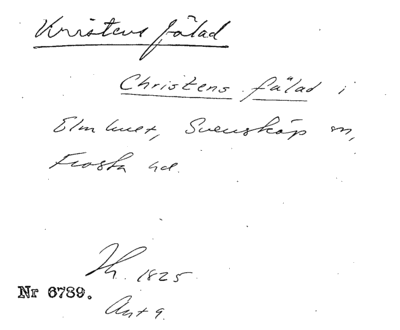 Kristens fälad
Christens fälad i
Elmhult, Svensköp sn,
Frosta hd.
Th. 1825
Nr 6789.
Ant 9.